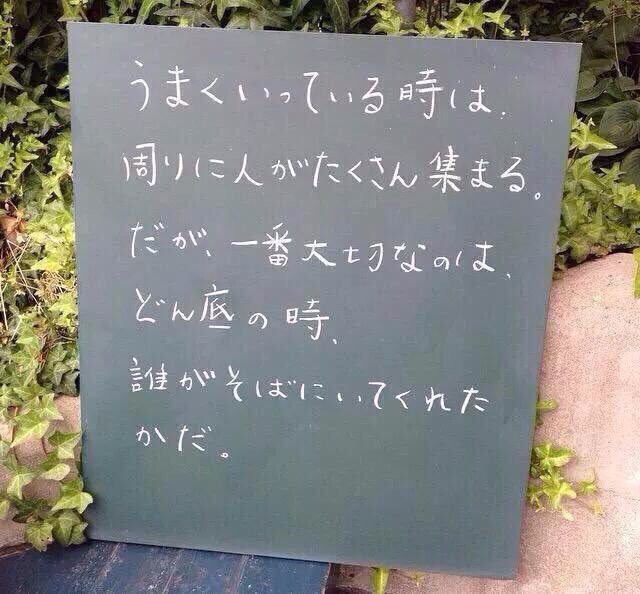 うまくいっている時は、
周りに人がたくさん集まる。
だが、一番大切なのは、
どん底の時、
誰がそばにいてくれた
かだ。